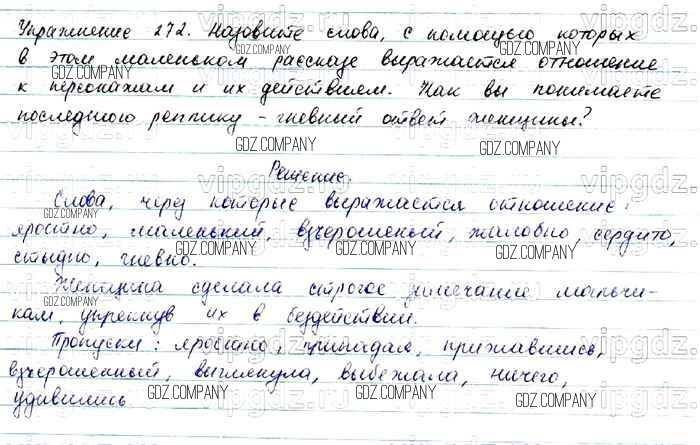 Упражнение 272. Назовите слова, с помощью которых
в этом маленьком рассказе выражается отношение
к персонажам и их действиям. Как вы понимаете
последнюю реплику - гневный ответ женщины?
Решение.
Слова, через которые выражается отношение:
яростно, маленький, взъерошенный, жалобно, сердито,
стыдно, гневно.
Женщина сделала строгое замечание мальчи-
кам, упрекнув их в бездействии.
Пропуски: яростно, припадая, прижавшись,
взъерошенный, выглянула, выбежала, ничего,
удивились
GDZ.COMPANY
vipgdz